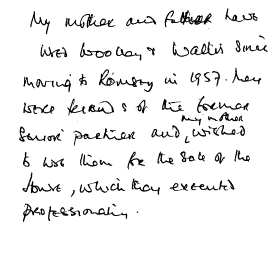 My mother and father have
used Woolley & Wallis since
moving to Romsey in 1957. They
were friends of the former
senior partner and, my mother wished
to use them for the sale of the
house, which they executed
professionally.